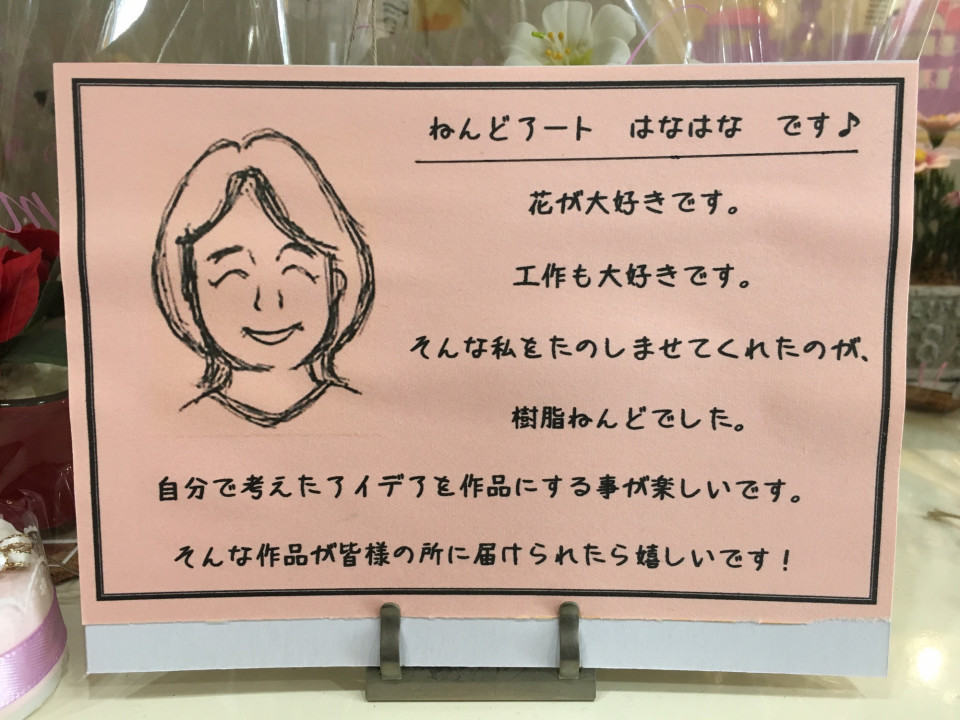 ねんどアート　はなはな　です♪
花が大好きです。
工作も大好きです。
そんな私をたのしませてくれたのが、
樹脂ねんどでした。
自分で考えたアイデアを作品にする事が楽しいです。
そんな作品が皆様の所に届けられたら嬉しいです！